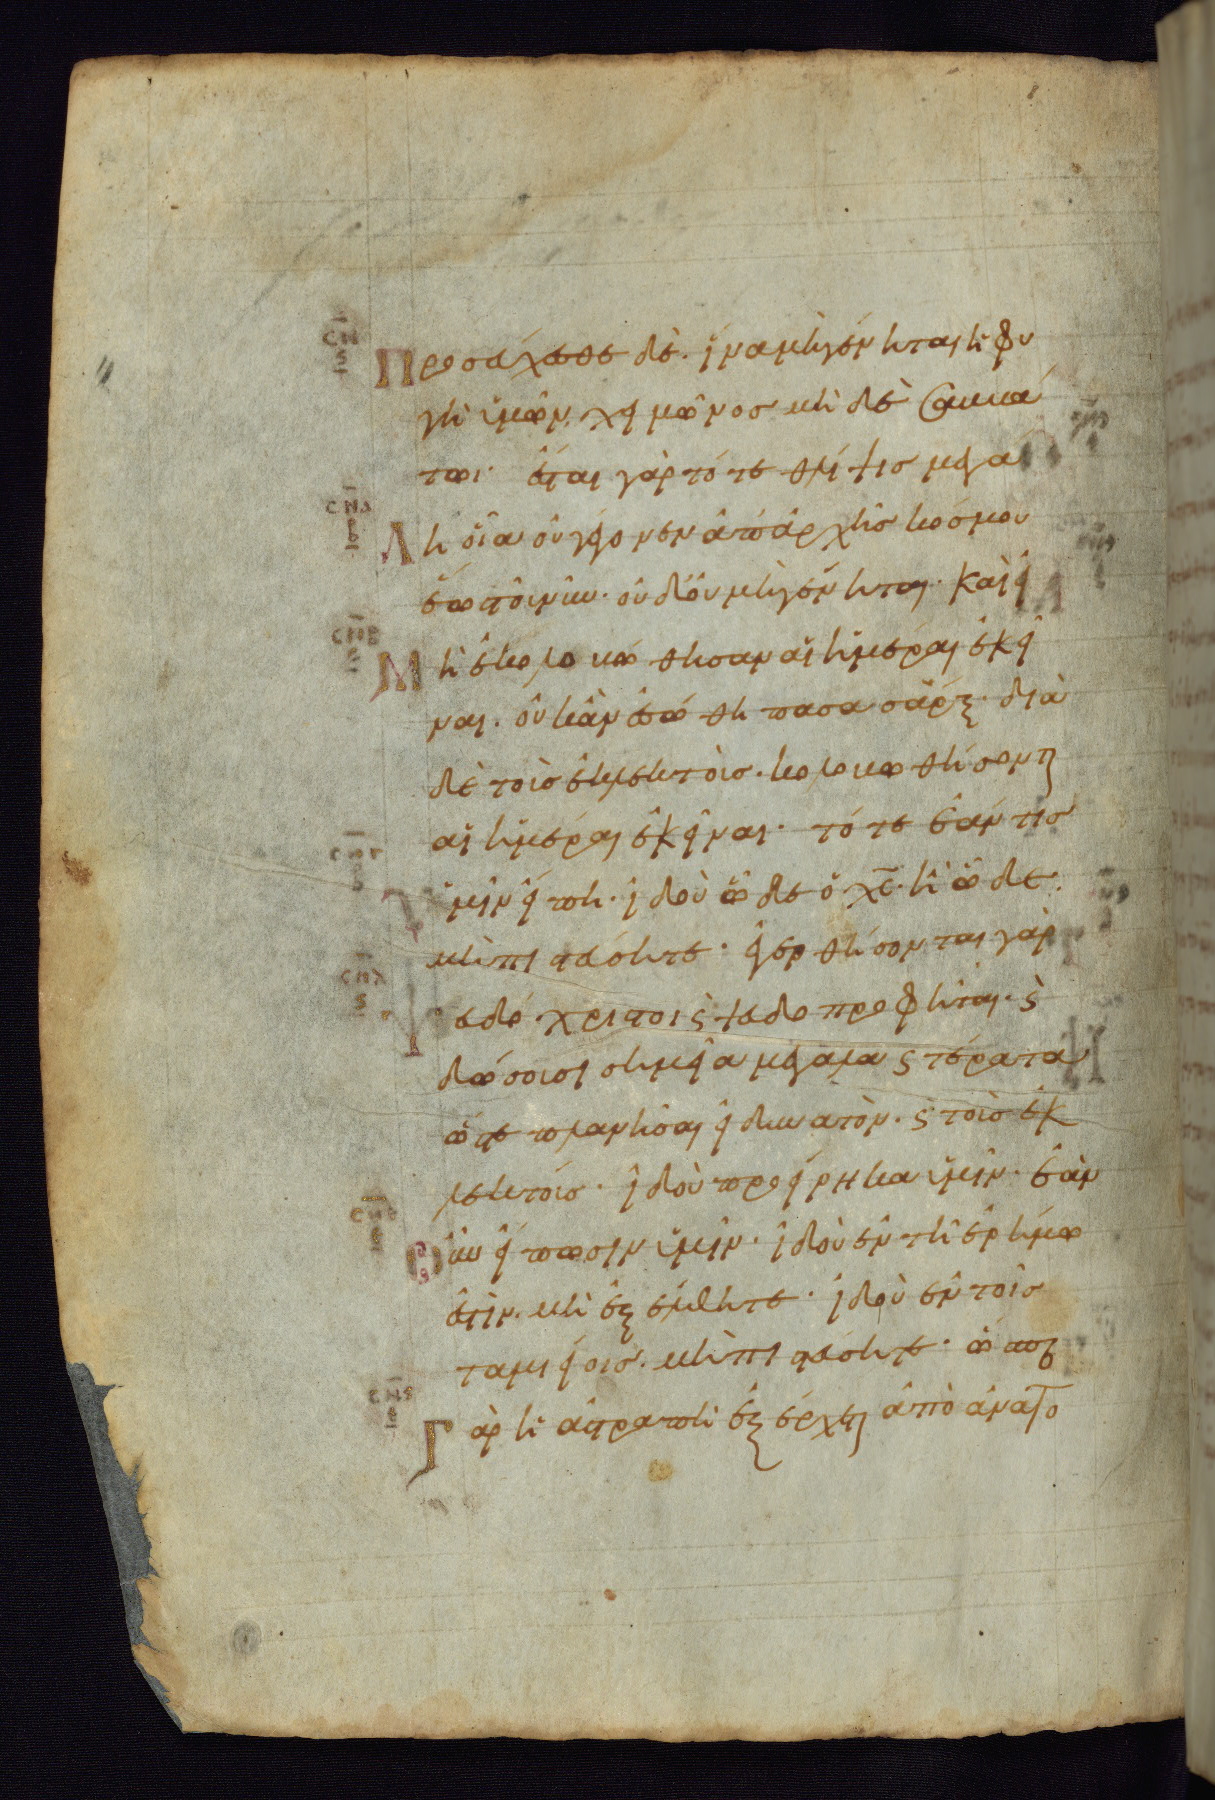 Προσεύχεσθε δέ. ἵνα μὴ γένηται ἡ φυ
γὴ ὑμῶν. χειμῶνος μὴ δὲ σαββά
τωι. ἔσται γὰρ τότε θλίψις μεγά
λη οἵα οὐ γέγονεν ἀπ' ἀρχῆς κόσμου
ἕως τοῦ νῦν. οὐδ' οὐ μὴ γένηται. καὶ εἰ
μὴ ἐκολοβώθησαν αἱ ἡμέραι ἐκεῖ
ναι. οὐκ ἂν ἐσώθη πᾶσα σάρξ. διὰ
δὲ τοὺς ἐκλεκτοὺς. κολοβωθήσονται
αἱ ἡμέραι ἐκεῖναι. τότε ἐάν τις
ὑμῖν εἴπη. ἰδοὺ ὧδε ὁ χς. ἢ ὧδε.
μὴ πιστεύσητε. ἐγερθήσονται γὰρ
ψευδό χριστοι ϛ ψευδο προφῆται. ϛ
δώσουσι σημεῖα μεγάλα ϛ τέρατα
ὥστε πλανῆσαι εἰ δυνατὸν. ϛ τοὺς ἐκ
λεκτούς. ἰδοὺ προείρηκα ὑμῖν. ἐὰν
οὖν εἴπωσιν ὑμῖν. ἰδοὺ ἐν τῆ ἐρήμω
ἐστὶν. μὴ ἐξέλθητε. ἰδοὺ ἐν τοῖς
ταμιείοις. μὴ πιστεύσητε. ὥσπερ
γὰρ ἡ ἀστραπὴ ἐξέρχεται ἀπὸ ἀνατο